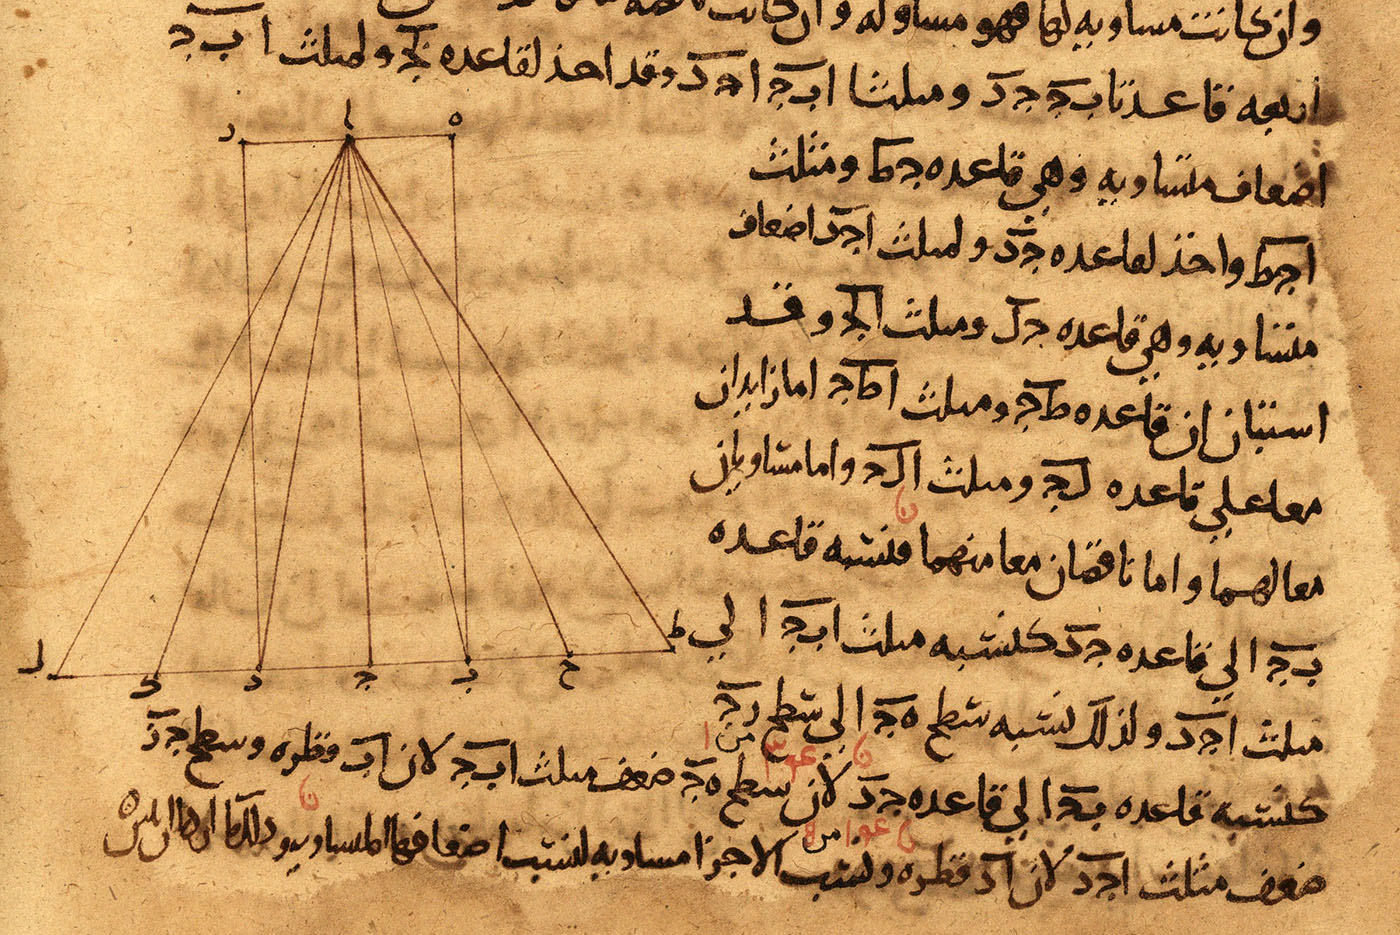 وان كانت مساويه لها فهو مساو له وان كانت
اربعه قاعدتا ب ج ج د ومثلثا ا ب ج ا ج د وقد اخذ لقاعده ب ج ولمثلث ا ب ج
اضعاف متساويه وهي قاعده ج ط ومثلث
ا ج ط واخذ لقاعده ج د ولمثلث ا ج د اضعاف
متساويه وهي قاعده ج ل ومثلث ا ل ج وقد
استبان ان قاعده ط ج ومثلث ا ط ج اما زايدان
معا علي قاعده ل ج ومثلث ا ل ج واما مساويان
معا لهما واما ناقصان معا منهما فنسبه قاعده
ب ج الي قاعده ج د كنسبه مثلث ا ب ج الي
مثلث ا ج د ولذلك نسبه سطح ه ج الي سطح ر ج
كنسبه قاعده ب ج الي قاعده ج د لان سطح ه ج ضعف مثلث ا ب ج لان ا ب قطره وسطح ج ر
ضعف مثلث ا ج د لان ا د قطره ونسب الاجزا مساويه لنسب اضعافها المتساويه وذلك ما اردنا ان نبين
ر ا ه
ل ك د ج ب ح ط
ن
من ا
ن
ن